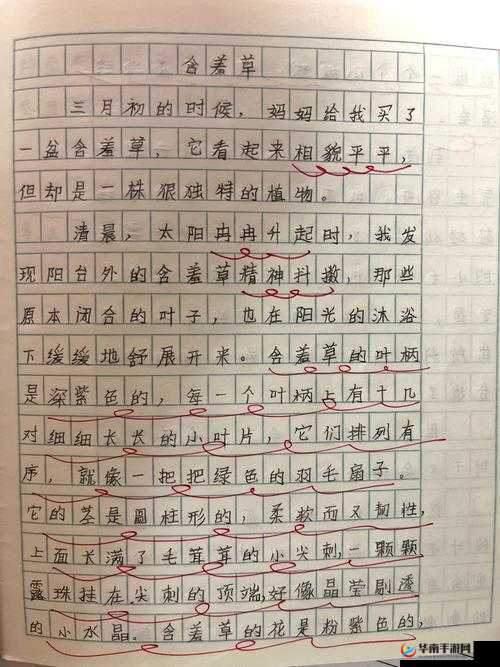 含羞草
三月初的时候，妈妈给我买了
一盆含羞草，它看起来相貌平平，
但却是一株狠独特的植物。
清晨，太阳冉冉升起时，我发
现阳台外的含羞草精神抖擞，那些
原本闭合的叶子，也在阳光的沐浴
下缓缓地舒展开来。含羞草的叶柄
是深紫色的，每一个叶柄占有十几
对细细长长的小叶片，它们排列有
序，就像一把把绿色的羽毛扇子。
它的茎是圆柱形的，柔软而又韧性，
上面长满了毛茸茸的小尖刺，一颗颗
露珠挂在尖刺的顶端，好像晶莹剔透
的小水晶。含羞草的花是粉紫色的，
华南手游网